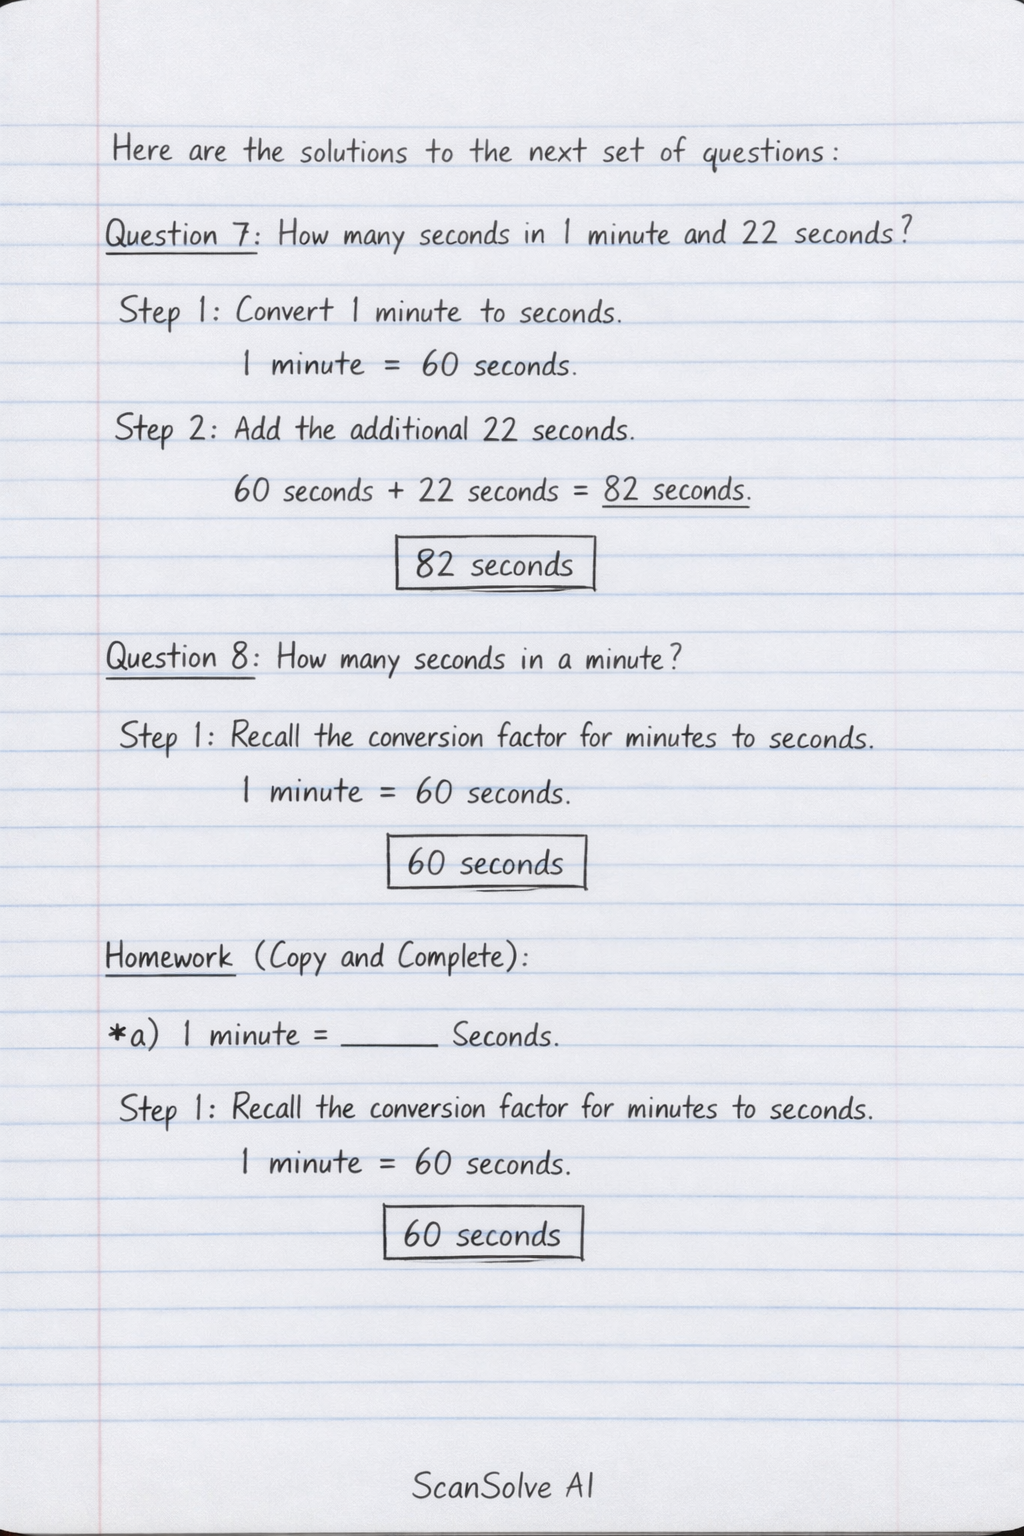 Here are the solutions to the next set of questions:
Question 7: How many seconds in 1 minute and 22 seconds?
Step 1: Convert 1 minute to seconds.
1 minute = 60 seconds.
Step 2: Add the additional 22 seconds.
60 seconds + 22 seconds = 82 seconds.
82 seconds
Question 8: How many seconds in a minute?
Step 1: Recall the conversion factor for minutes to seconds.
1 minute = 60 seconds.
60 seconds
Homework (Copy and Complete):
*a) 1 minute = ______ Seconds.
Step 1: Recall the conversion factor for minutes to seconds.
1 minute = 60 seconds.
60 seconds
ScanSolve AI